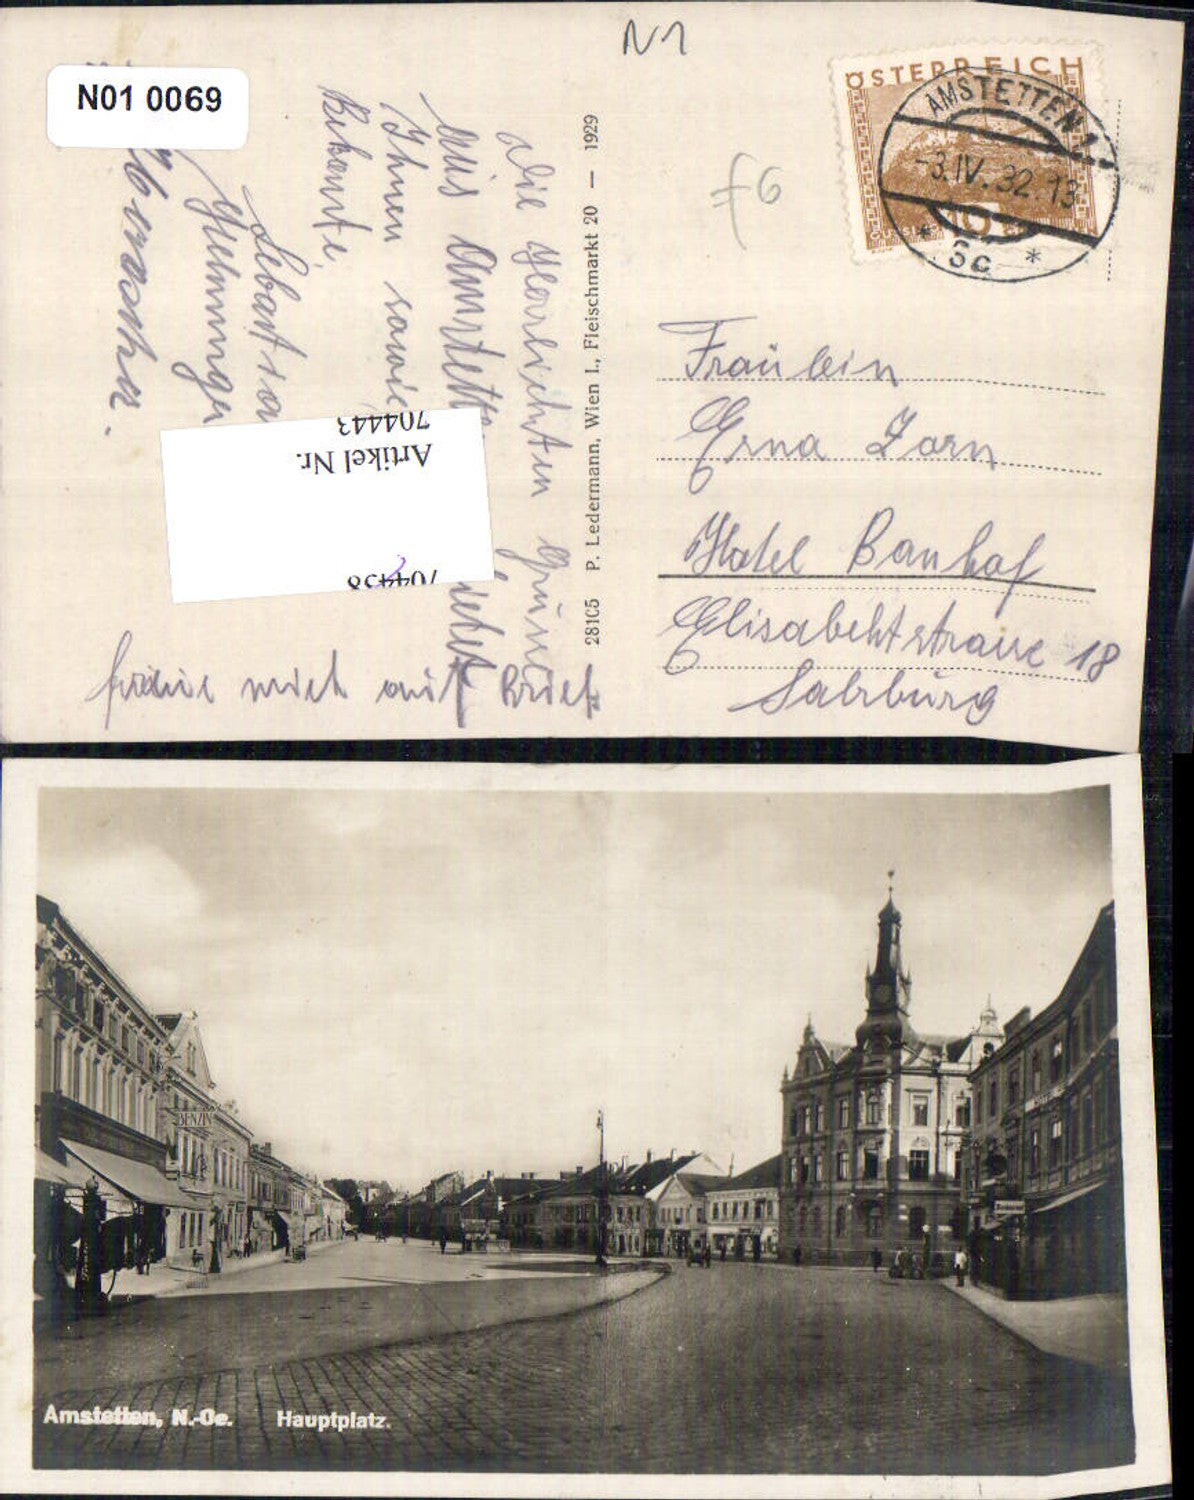 N1
N01 0069
ÖSTERREICH
AMSTETTEN 1
-3.IV.32.13
* 5c *
10
F6
Die Herzlichsten Grüsse
aus Amstetten
Ihnen sowie
Bekannte
Sebastian
28105 P. Ledermann, Wien I., Fleischmarkt 20 — 1929
Artikel Nr.
704443
704438
freue mich auf Brief
Fräulein
Erna Zorn
Hotel Banhof
Elisabehtstrasse 18
Salzburg
BENZIN
Amstetten, N.-Oe. Hauptplatz.